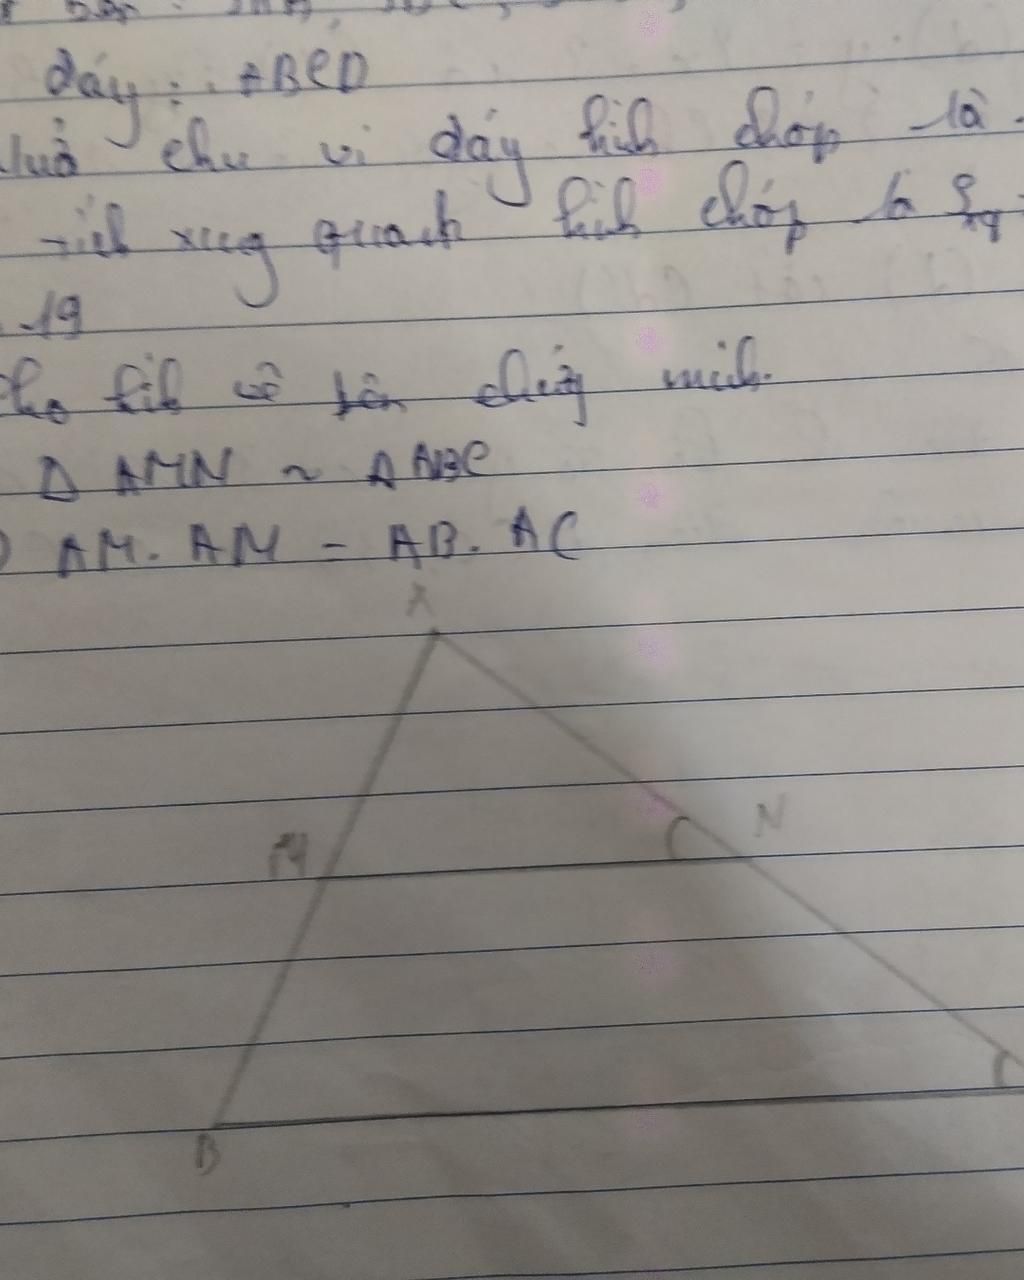 đáy : ABCD
chu vi đáy hình chóp là
xung quanh hình chóp là Sxq
19
hình vẽ bên chứng minh.
Δ AMN ~ Δ ABC
) AM. AN = AB. AC
A
M
N
B